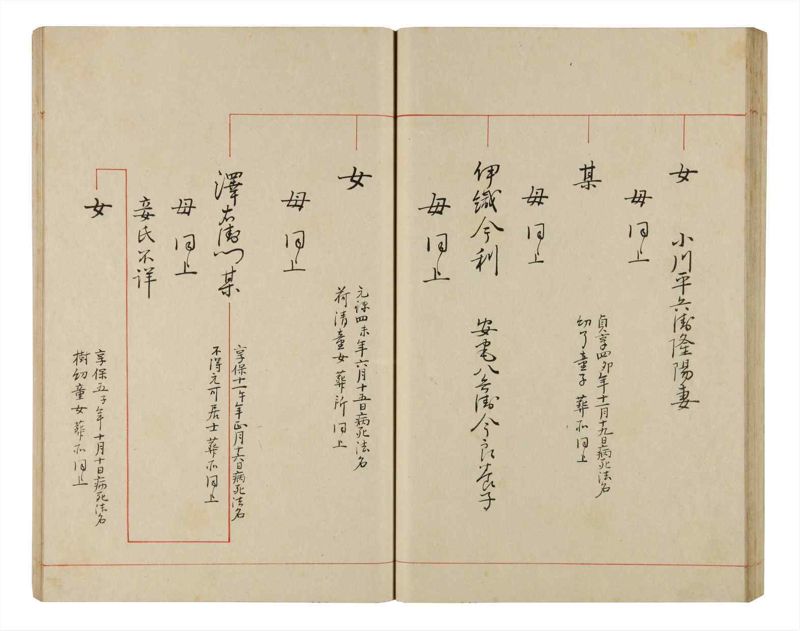 女
小川平兵衛隆陽妻
母同上
某
貞享四卯年十一月十九日病死法名
幼了童子葬所同上
母同上
伊織今利
安宅八兵衛今 養子
母同上
女
元禄四未年六月十五日病死法名
荷清童女葬所同上
母同上
澤右衛門某
享保十一午年正月十六日病死法名
不得元可居士葬所同上
母同上
妾氏不詳
女
享保五子年十月十日病死法名
樹幻童女葬所同上